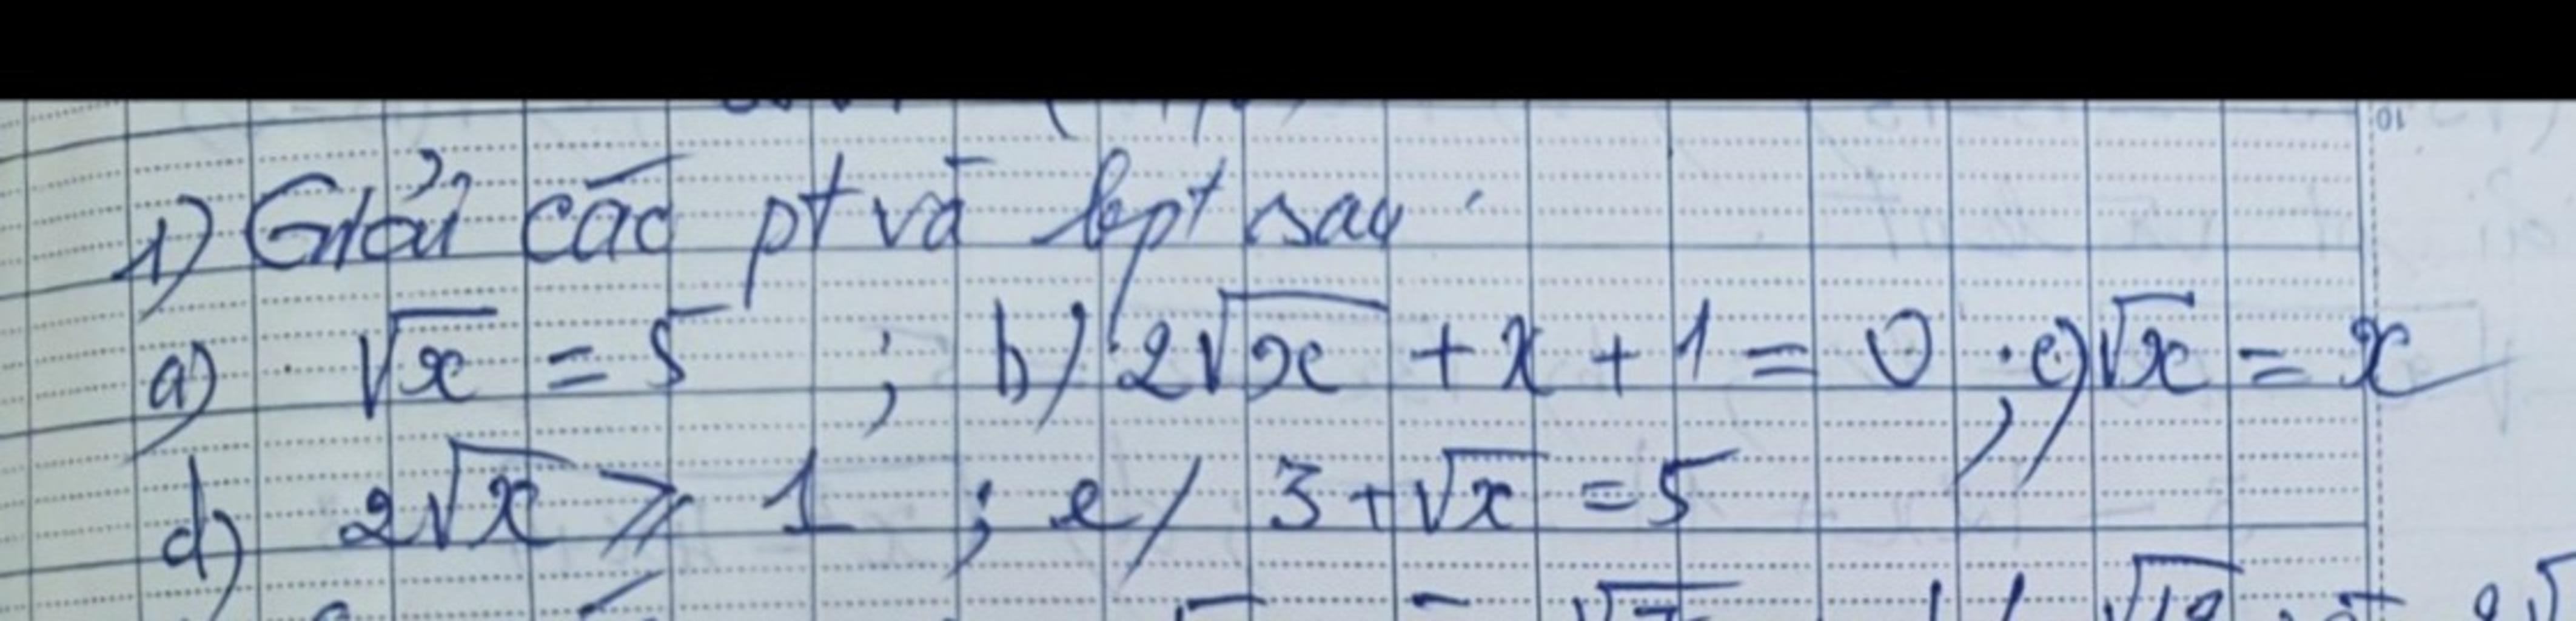 1) Giải các pt và bpt sau:
a) √x = 5 ; b) 2√x + x + 1 = 0 ; c) √x = x
d) 2√x ⩾ 1 ; e/ 3 + √x = 5